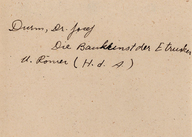 Durm, Dr. Josef
Die Baukunst der Etrusker
u. Römer (H. d. A)